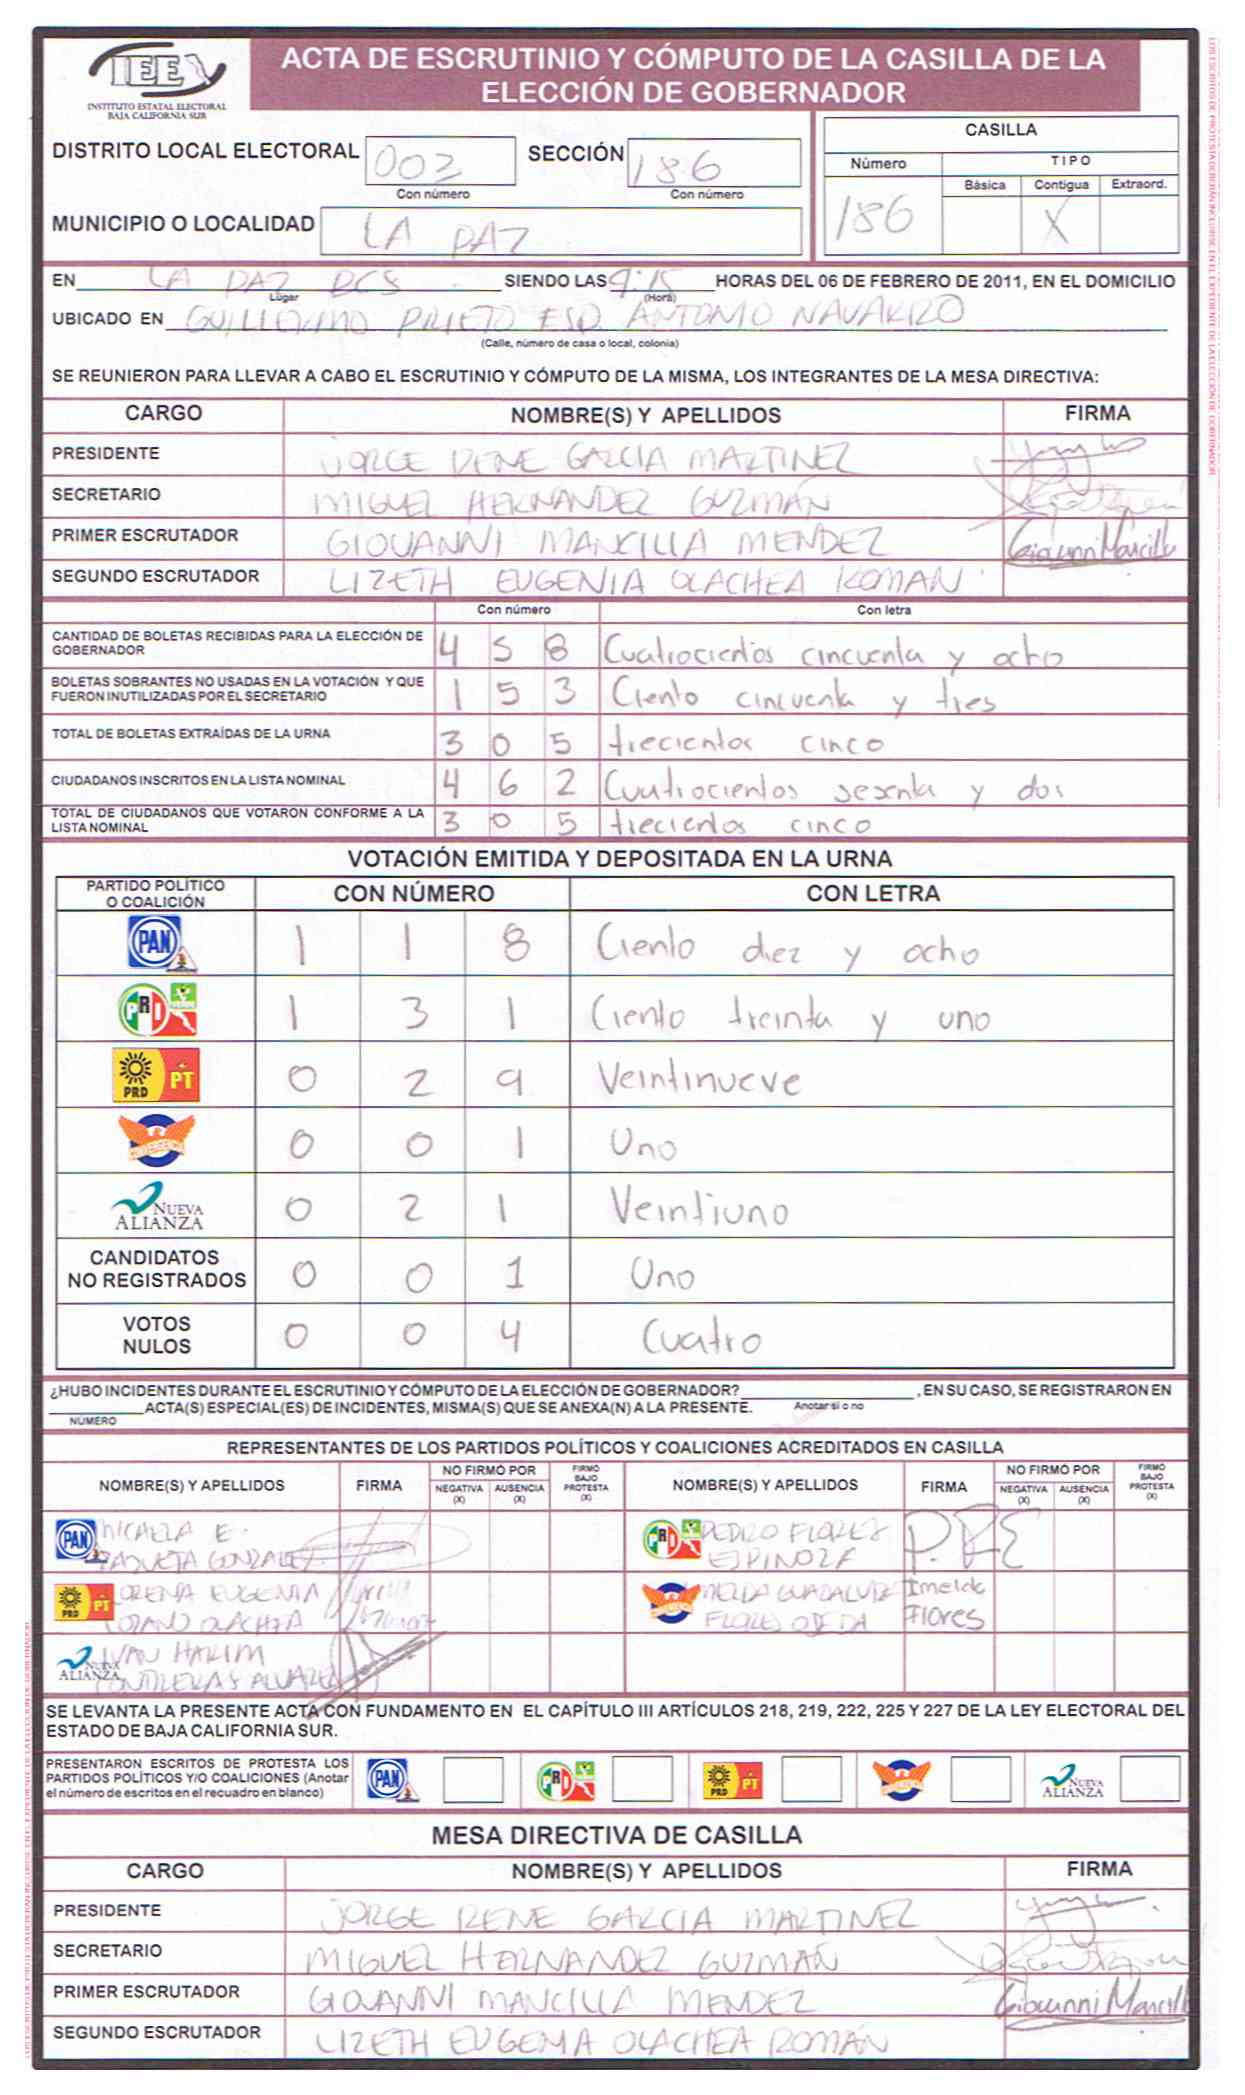 IEE
INSTITUTO ESTATAL ELECTORAL
BAJA CALIFORNIA SUR
ACTA DE ESCRUTINIO Y CÓMPUTO DE LA CASILLA DE LA
ELECCIÓN DE GOBERNADOR
DISTRITO LOCAL ELECTORAL 002 SECCIÓN 186
Con número Con número
MUNICIPIO O LOCALIDAD LA PAZ
CASILLA
Número TIPO
Básica Contigua Extraord.
186 X
EN LA PAZ BCS SIENDO LAS 9:15 HORAS DEL 06 DE FEBRERO DE 2011, EN EL DOMICILIO
Lugar (Hora)
UBICADO EN GUILLERMO PRIETO ESQ. ANTONIO NAVARRO
(Calle, número de casa o local, colonia)
SE REUNIERON PARA LLEVAR A CABO EL ESCRUTINIO Y CÓMPUTO DE LA MISMA, LOS INTEGRANTES DE LA MESA DIRECTIVA:
CARGO NOMBRE(S) Y APELLIDOS FIRMA
PRESIDENTE JORGE RENE GARCIA MARTINEZ
SECRETARIO MIGUEL HERNANDEZ GUZMÁN
PRIMER ESCRUTADOR GIOVANNI MANCILLA MENDEZ Giovanni Mancilla
SEGUNDO ESCRUTADOR LIZETH EUGENIA OLACHEA ROMAN
Con número Con letra
CANTIDAD DE BOLETAS RECIBIDAS PARA LA ELECCIÓN DE
GOBERNADOR 4 5 8 Cuatrocientos cincuenta y ocho
BOLETAS SOBRANTES NO USADAS EN LA VOTACIÓN Y QUE
FUERON INUTILIZADAS POR EL SECRETARIO 1 5 3 Ciento cincuenta y tres
TOTAL DE BOLETAS EXTRAÍDAS DE LA URNA 3 0 5 trecientos cinco
CIUDADANOS INSCRITOS EN LA LISTA NOMINAL 4 6 2 Cuatrocientos sesenta y dos
TOTAL DE CIUDADANOS QUE VOTARON CONFORME A LA
LISTA NOMINAL 3 0 5 trecientos cinco
VOTACIÓN EMITIDA Y DEPOSITADA EN LA URNA
PARTIDO POLÍTICO
O COALICIÓN CON NÚMERO CON LETRA
PAN 1 1 8 Ciento diez y ocho
PRI VERDE 1 3 1 Ciento treinta y uno
PRD PT 0 2 9 Veintinueve
0 0 1 Uno
NUEVA
ALIANZA 0 2 1 Veintiuno
CANDIDATOS
NO REGISTRADOS 0 0 1 Uno
VOTOS
NULOS 0 0 4 Cuatro
¿HUBO INCIDENTES DURANTE EL ESCRUTINIO Y CÓMPUTO DE LA ELECCIÓN DE GOBERNADOR? , EN SU CASO, SE REGISTRARON EN
ACTA(S) ESPECIAL(ES) DE INCIDENTES, MISMA(S) QUE SE ANEXA(N) A LA PRESENTE. Anotar si o no
NÚMERO
REPRESENTANTES DE LOS PARTIDOS POLÍTICOS Y COALICIONES ACREDITADOS EN CASILLA
NOMBRE(S) Y APELLIDOS FIRMA NO FIRMÓ POR NEGATIVA (X) AUSENCIA (X) FIRMÓ BAJO PROTESTA (X) NOMBRE(S) Y APELLIDOS FIRMA NO FIRMÓ POR NEGATIVA (X) AUSENCIA (X) FIRMÓ BAJO PROTESTA (X)
PAN MICAELA E. GONZALEZ PRI PEDRO FLORES ESPINOZA P.F.E
PRD PT LORENA EUGENIA LOZANO OLACHEA IMELDA GUADALUPE FLORES OJEDA Imelda Flores
NUEVA ALIANZA IVAN HARIM CONTRERAS ALVAREZ
SE LEVANTA LA PRESENTE ACTA CON FUNDAMENTO EN EL CAPÍTULO III ARTÍCULOS 218, 219, 222, 225 Y 227 DE LA LEY ELECTORAL DEL
ESTADO DE BAJA CALIFORNIA SUR.
PRESENTARON ESCRITOS DE PROTESTA LOS
PARTIDOS POLÍTICOS Y/O COALICIONES (Anotar
el número de escritos en el recuadro en blanco) PAN PRI PRD PT NUEVA ALIANZA
MESA DIRECTIVA DE CASILLA
CARGO NOMBRE(S) Y APELLIDOS FIRMA
PRESIDENTE JORGE RENE GARCIA MARTINEZ
SECRETARIO MIGUEL HERNANDEZ GUZMÁN
PRIMER ESCRUTADOR GIOVANNI MANCILLA MENDEZ Giovanni Mancilla
SEGUNDO ESCRUTADOR LIZETH EUGENIA OLACHEA ROMÁN